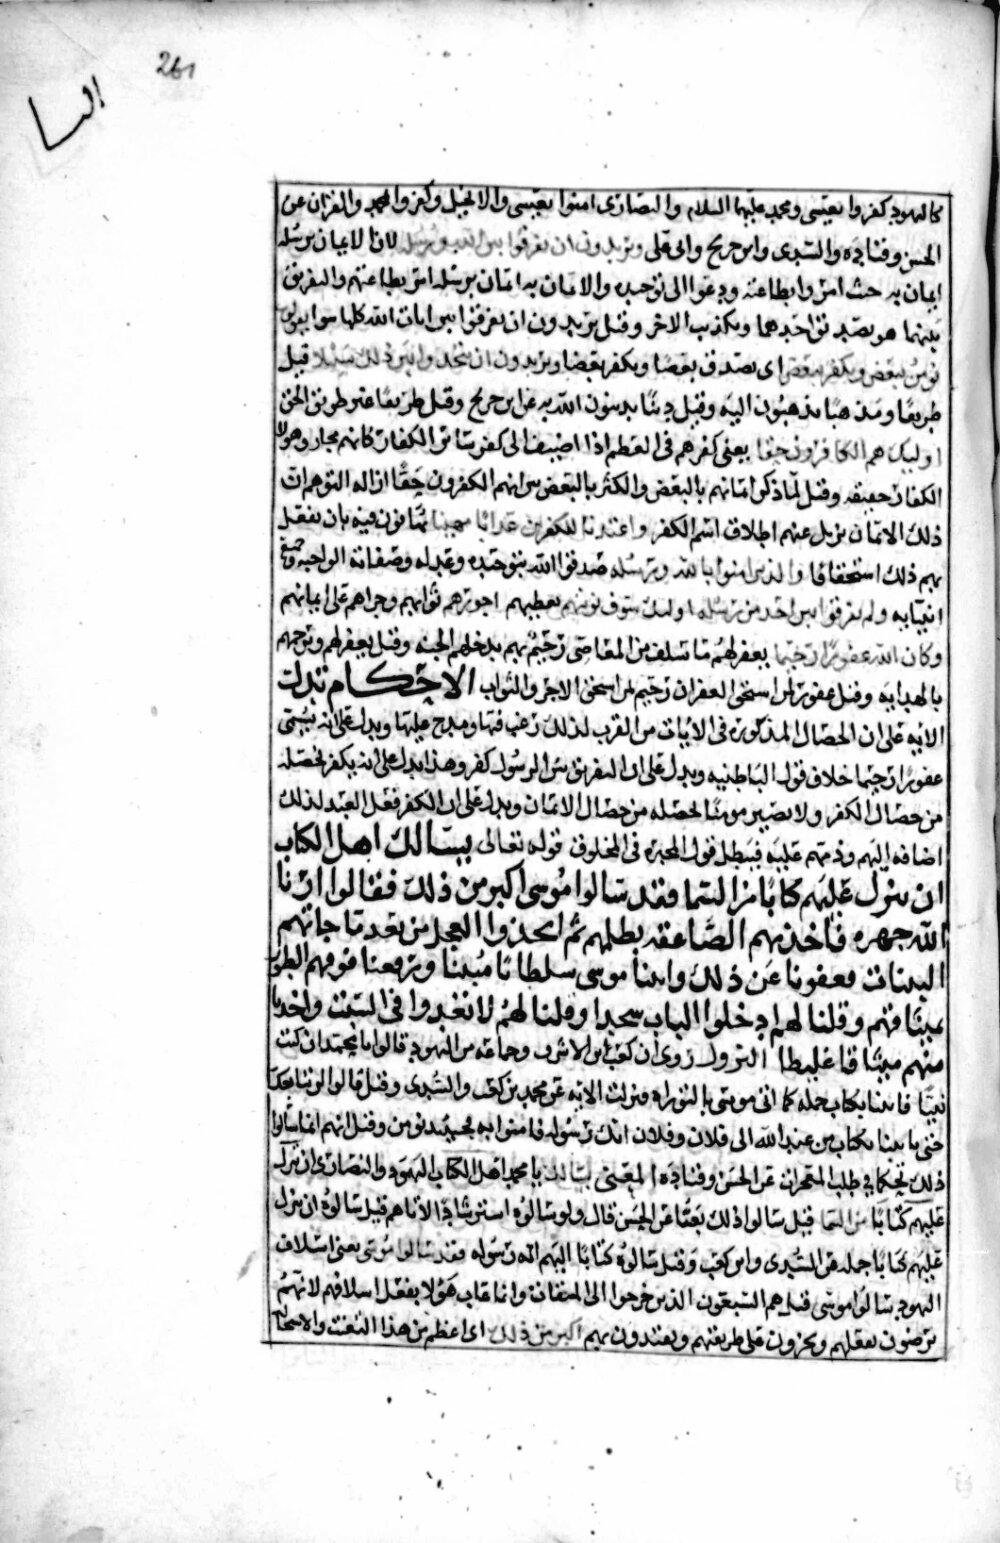 261
النسا
كاليهود كفروا بعيسى ومحمد عليهما السلام والنصارى امنوا بعيسى والانجيل وكفروا بمحمد والقران عن
الحسن وقتاده والسدى وابن جريج وابى على ويريدون ان يفرقوا بين الله ورسله لان الايمان برسله
ايمان به حيث امر وا بطاعته ودعوا الى توحيده والايمان به ايمان برسله امر بطاعتهم والتفريق
بينهما هو تصديق احدهما وتكذيب الاخر وقيل يريدون ان يفرقوا بين ايات الله كلها سوا يقولون
نومن ببعض ونكفر ببعض اى نصدق بعضا ونكفر بعضا ويريدون ان يتخذوا بين ذلك سبيلا قيل
طريقا ومذهبا يذهبون اليه وقيل دينا يدينون الله به عن ابن جريج وقيل طريقا غير طريق الحق
اوليك هم الكافرون حقا يعنى كفرهم فى العظم اذا اضيف الى كفر سائر الكفار كانهم مجاز وهولا
الكفار حقيقه وقيل لما ذكر ايمانهم بالبعض والكفر بالبعض بين انهم الكفرون حقا ازاله التوهم ان
ذلك الايمان يزيل عنهم اطلاق اسم الكفر واعتدنا للكفرين عذابا مهينا يهانون فيه بان يفعل
بهم ذلك استخفافا والذين امنوا بالله ورسله صدقوا الله بتوحيده وعدله وصفاته الواجبه وجميع
انبيايه ولم يفرقوا بين احد من رسله اوليك سوف نوتيهم نعطيهم اجورهم ثوابهم وجزاهم على ايمانهم
وكان الله غفورا رحيما يغفر لهم ما سلف من المعاصى رحيم بهم يدخلهم الجنه وقيل يغفر لهم ويرحمهم
بالهدايه وقيل غفور لمن استحق الغفران رحيم لمن استحق الاجر والثواب الاحكام تدل
الايه على ان الخصال المذكوره فى الايات من القرب لذلك رغب فيها ومدح عليها ويدل على انه يسمى
غفورا رحيما خلاف قول الباطنيه ويدل على ان التفريق بين الرسول كفر وهذا يدل على انه يكفر بخصله
من خصال الكفر ولا يصير مومنا بخصله من خصال الايمان ويدل على ان الكفر فعل العبد لذلك
اضافه اليهم وذمهم عليه فيبطل قول المجبره فى المخلوق قوله تعالى يسالك اهل الكتاب
ان تنزل عليهم كتابا من السما فقد سالوا موسى اكبر من ذلك فقالوا ارنا
الله جهره فاخذتهم الصاعقه بظلمهم ثم اتخذوا العجل من بعد ما جاتهم
البينات فعفونا عن ذلك واتينا موسى سلطانا مبينا ورفعنا فوقهم الطور
بميثاقهم وقلنا لهم ادخلوا الباب سجدا وقلنا لهم لا تعدوا فى السبت واخذنا
منهم ميثاقا غليظا النزول روى ان كعب بن الاشرف وجماعه من اليهود قالوا يا محمد ان كنت
نبيا فاتنا بكتاب جمله كما اتى موسى بالتوراه فنزلت الايه عن محمد بن كعب والسدى وقيل قالوا لن نتابعك
حتى ياتينا بكتاب من عند الله الى فلان وفلان انك رسوله فامنوا به فحينيذ نومن وقيل انهم انما سالوا
ذلك تحكما فى طلب المعجزات عن الحسن وقتاده المعنى يسالك يا محمد اهل الكتاب اليهود والنصارى ان تنزل
عليهم كتابا من السما قيل سالوا ذلك تعنتا عن الحسن قال ولو سالوه استرشادا لاتاهم قيل سالوه ان ينزل
عليهم كتابا جمله عن السدى وابن كعب وقيل سالوه كتابا اليهم انه رسوله فقد سالوا موسى يعنى اسلاف
اليهود سالوا موسى قيل هم السبعون الذين خرجوا الى الميقات وانما عاب هولا بفعل اسلافهم لانهم
يرضون بفعلهم ويجرون على طريقتهم ويقتدون بهم اكبر من ذلك اى اعظم من هذا التعنت والامتحان